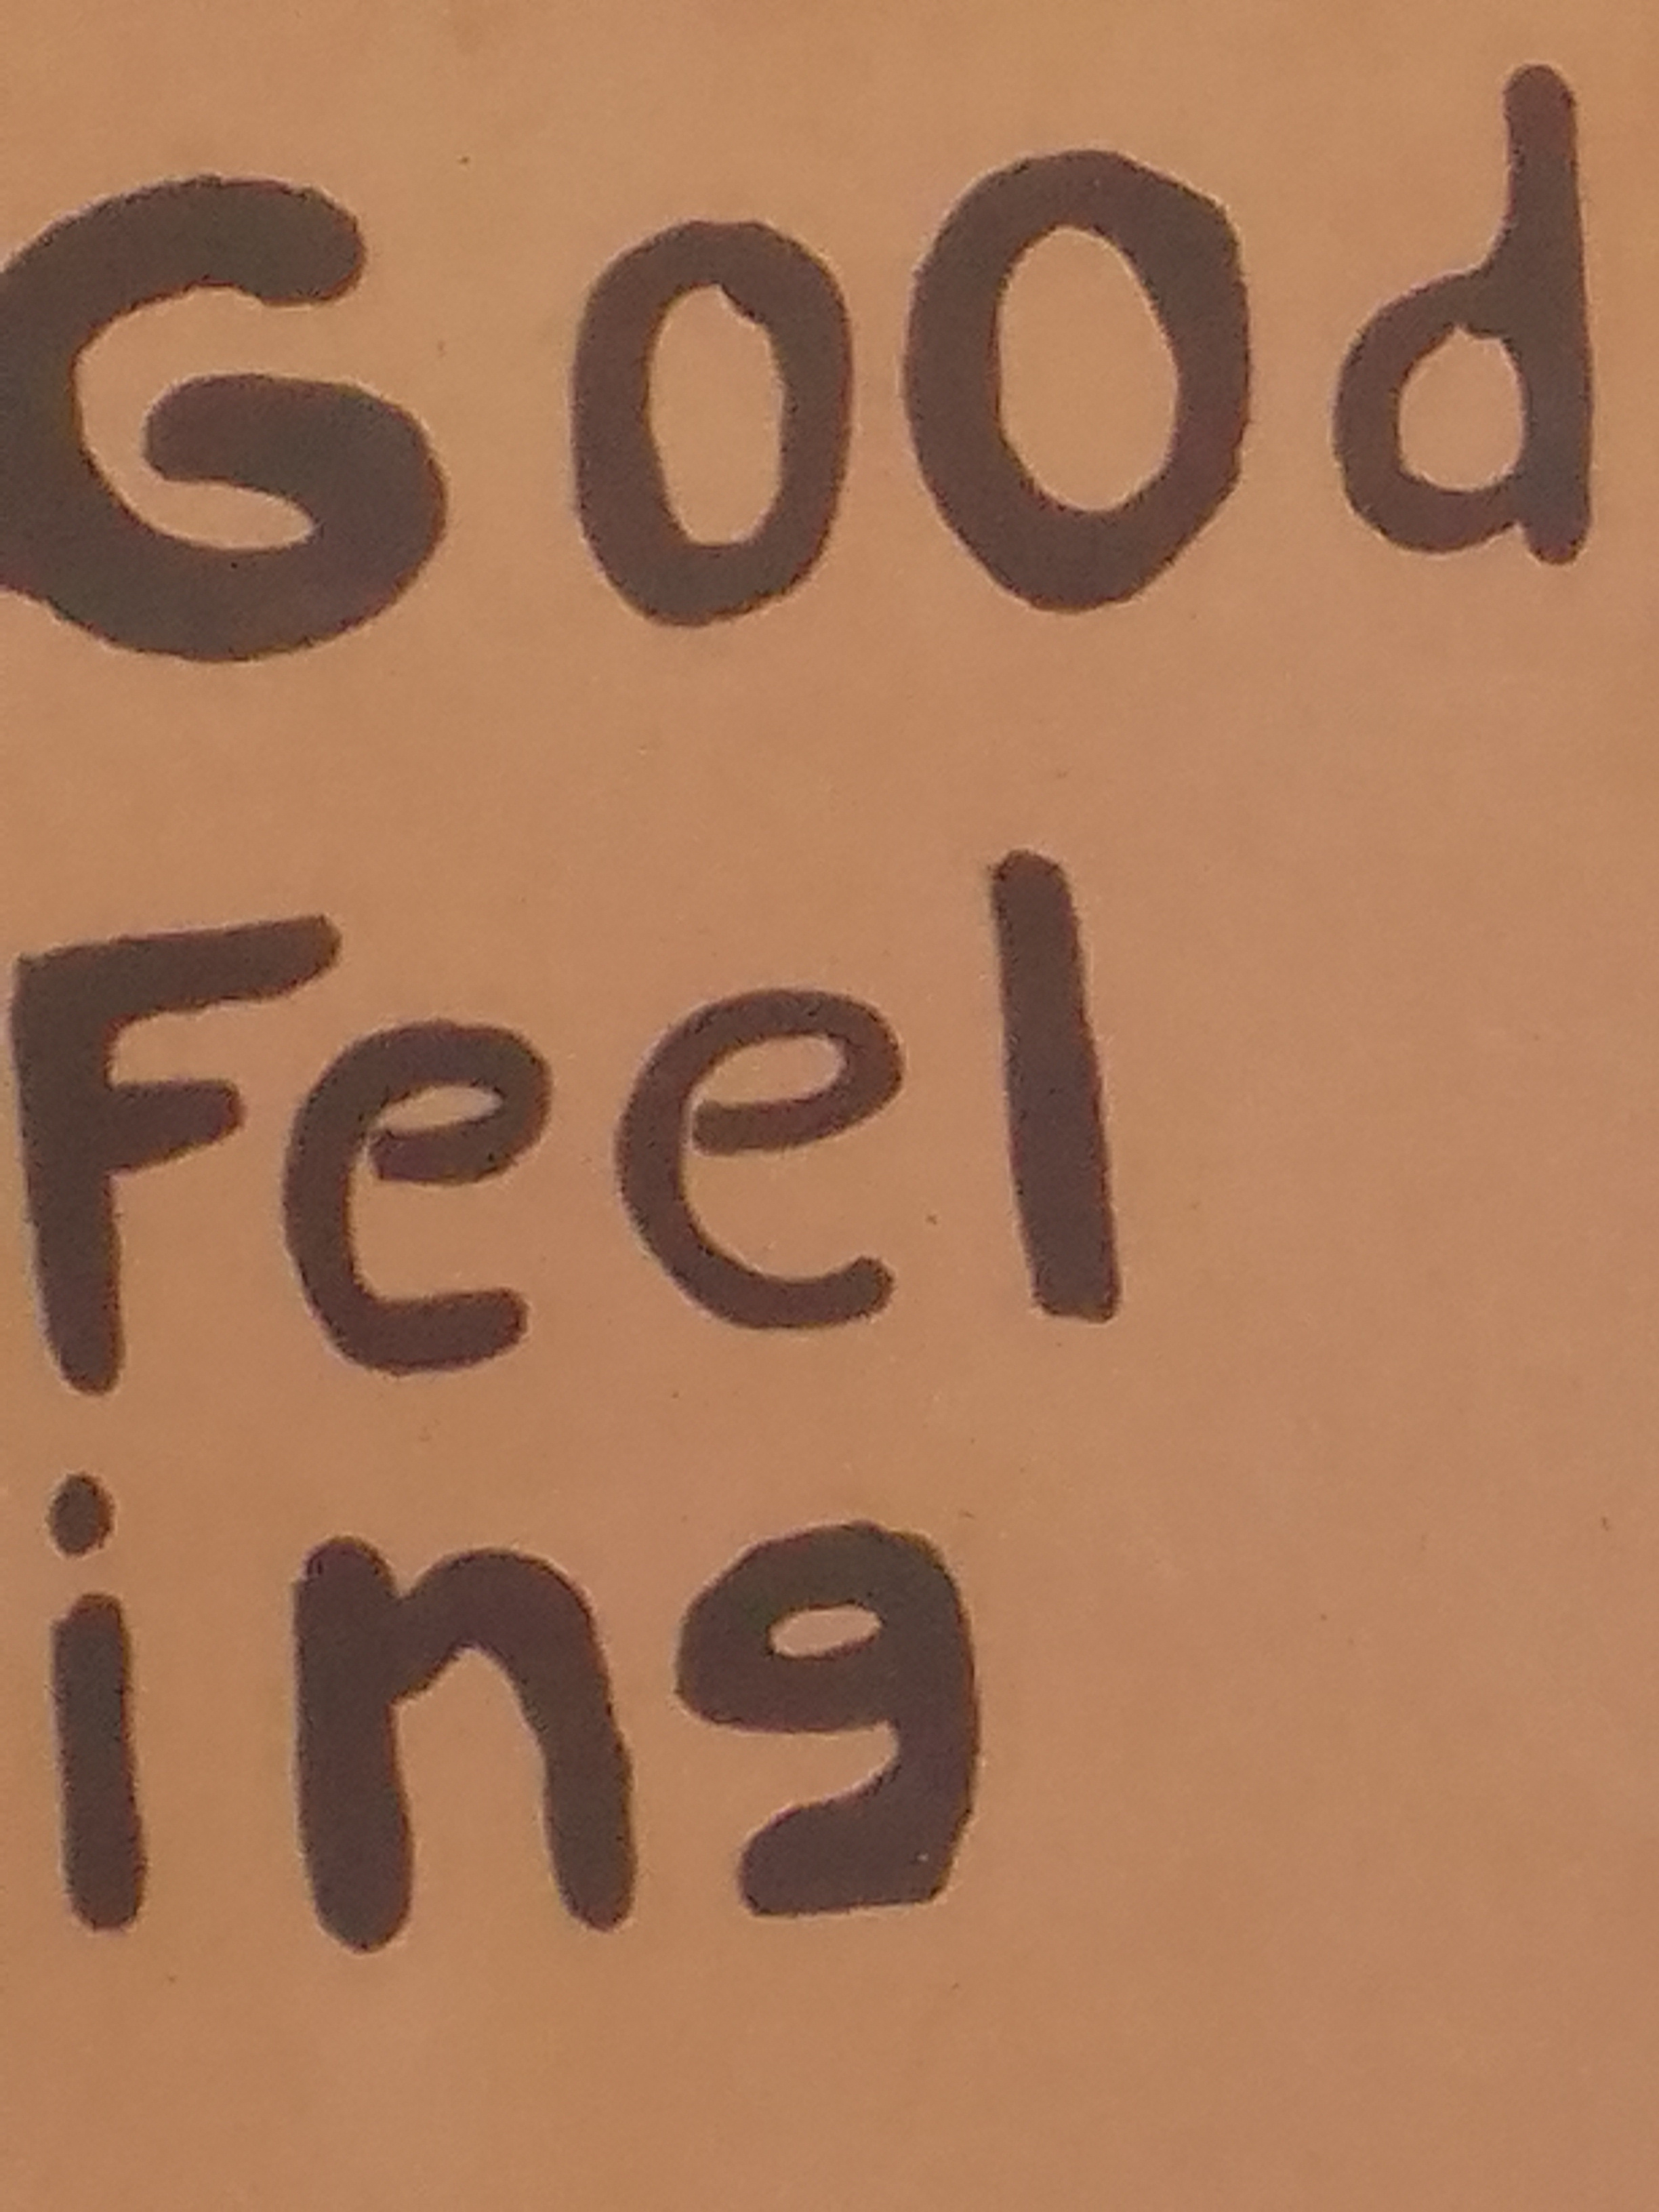 GOOd
Feel
ing